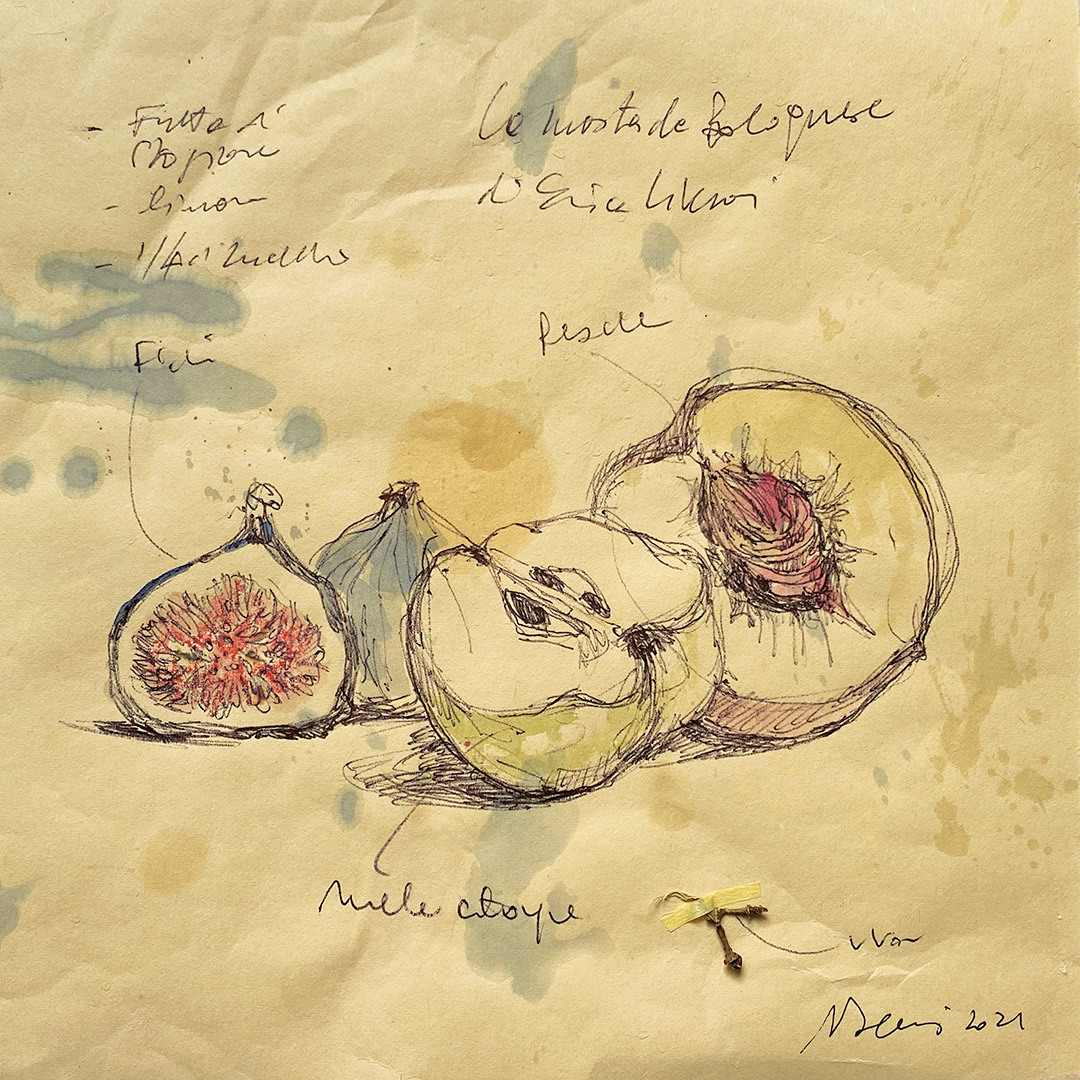 - Frutta di
stagione
- limone
- 1/4 di zucchero
La mostarda Bolognese
di Erica Liverani
Fichi
Pesche
Mele cotogne
uva
2021